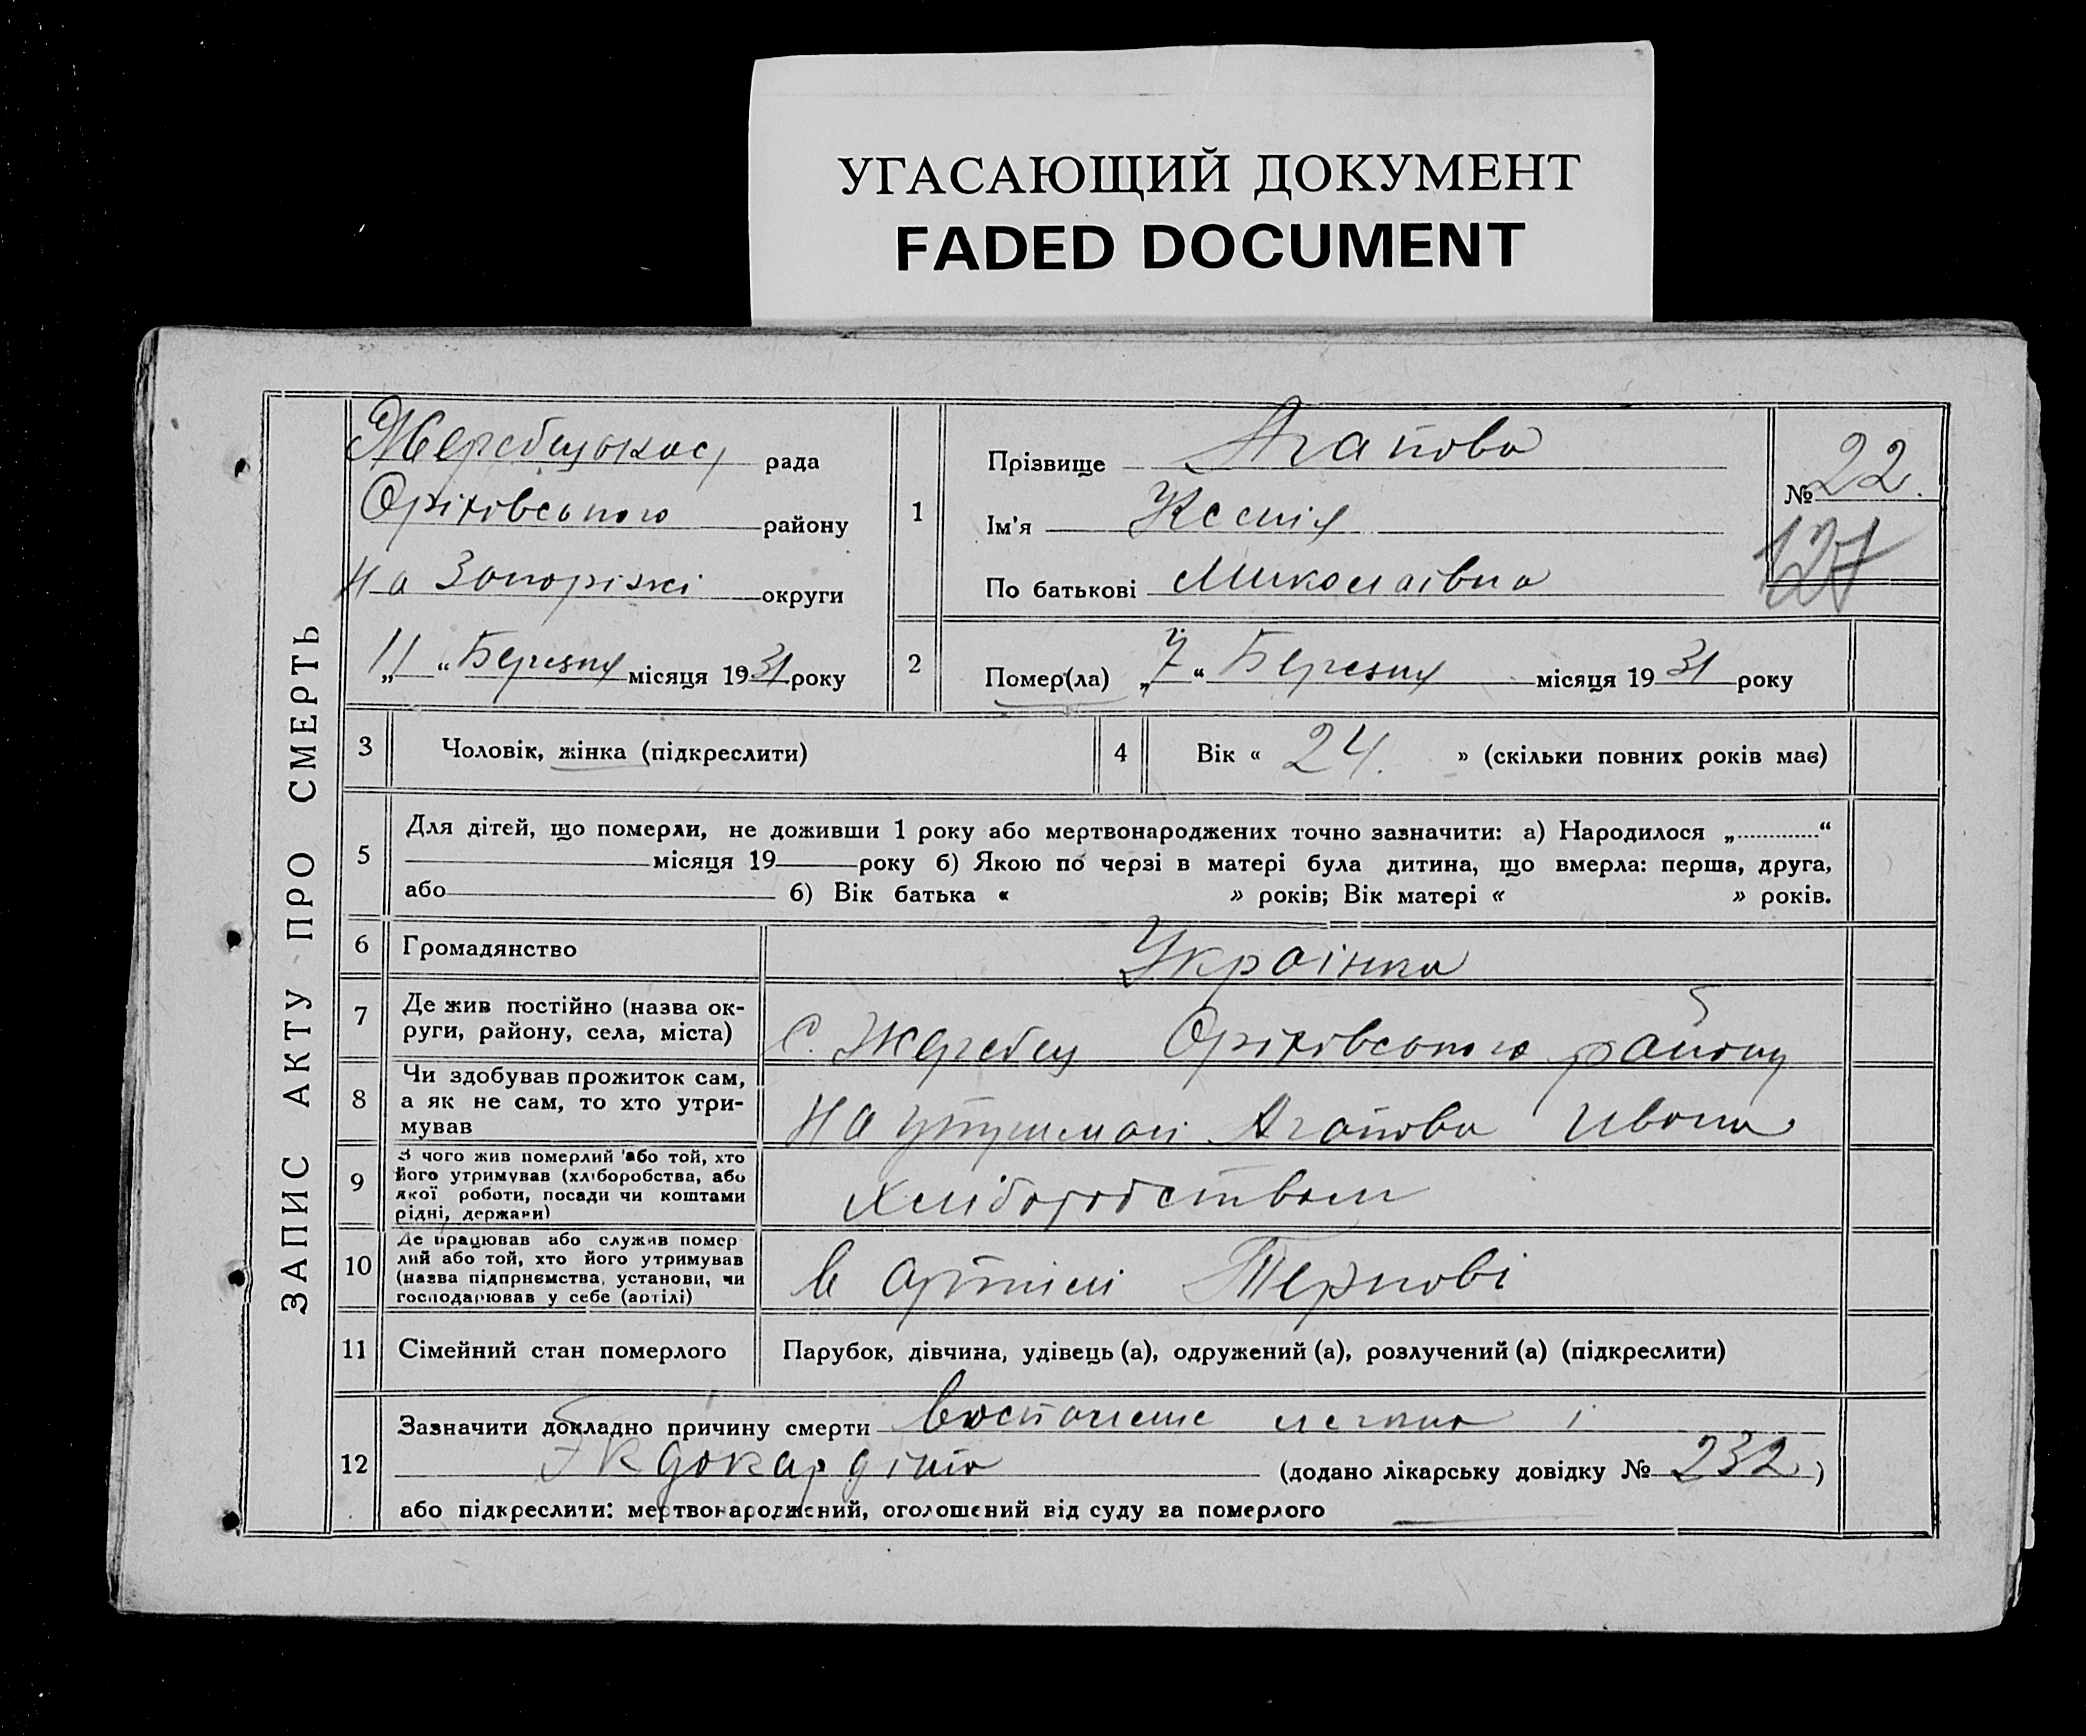 УГАСАЮЩИЙ ДОКУМЕНТ
FADED DOCUMENT
ЗАПИС АКТУ ПРО СМЕРТЬ
Жеребецька рада
Оріхівського району
На Запоріжжі округи
„11“ Березня місяця 1931 року
1
Прізвище Агапова
Ім'я Ксенія
По батькові Миколаівна
№ 22.
127
2
Помер(ла) „7“ Березня місяця 1931 року
3 Чоловік, жінка (підкреслити)
4 Вік « 24. » (скільки повних років має)
5 Для дітей, що померли, не доживши 1 року або мертвонароджених точно зазначити: а) Народилося „ “
місяця 19 року б) Якою по черзі в матері була дитина, що вмерла: перша, друга,
або б) Вік батька « » років; Вік матері « » років.
6 Громадянство Украінка
7 Де жив постійно (назва ок-
руги, району, села, міста) с. Жеребец Оріхівського району
8 Чи здобував прожиток сам,
а як не сам, то хто утри-
мував На утриманні Агапова Ивана
9 З чого жив померлий або той, хто
його утримував (хліборобства, або
якої роботи, посади чи коштами
рідні, держави) хліборобством
10 Де працював або служив помер
лий або той, хто його утримував
(назва підприємства, установи, чи
господарював у себе (артілі) в артілі Тернові
11 Сімейний стан померлого Парубок, дівчина, удівець (а), одружений (а), розлучений (а) (підкреслити)
12 Зазначити докладно причину смерти воспаление легких і
Экдокардіта (додано лікарську довідку № 232)
або підкреслити: мертвонароджений, оголошений від суду за померлого